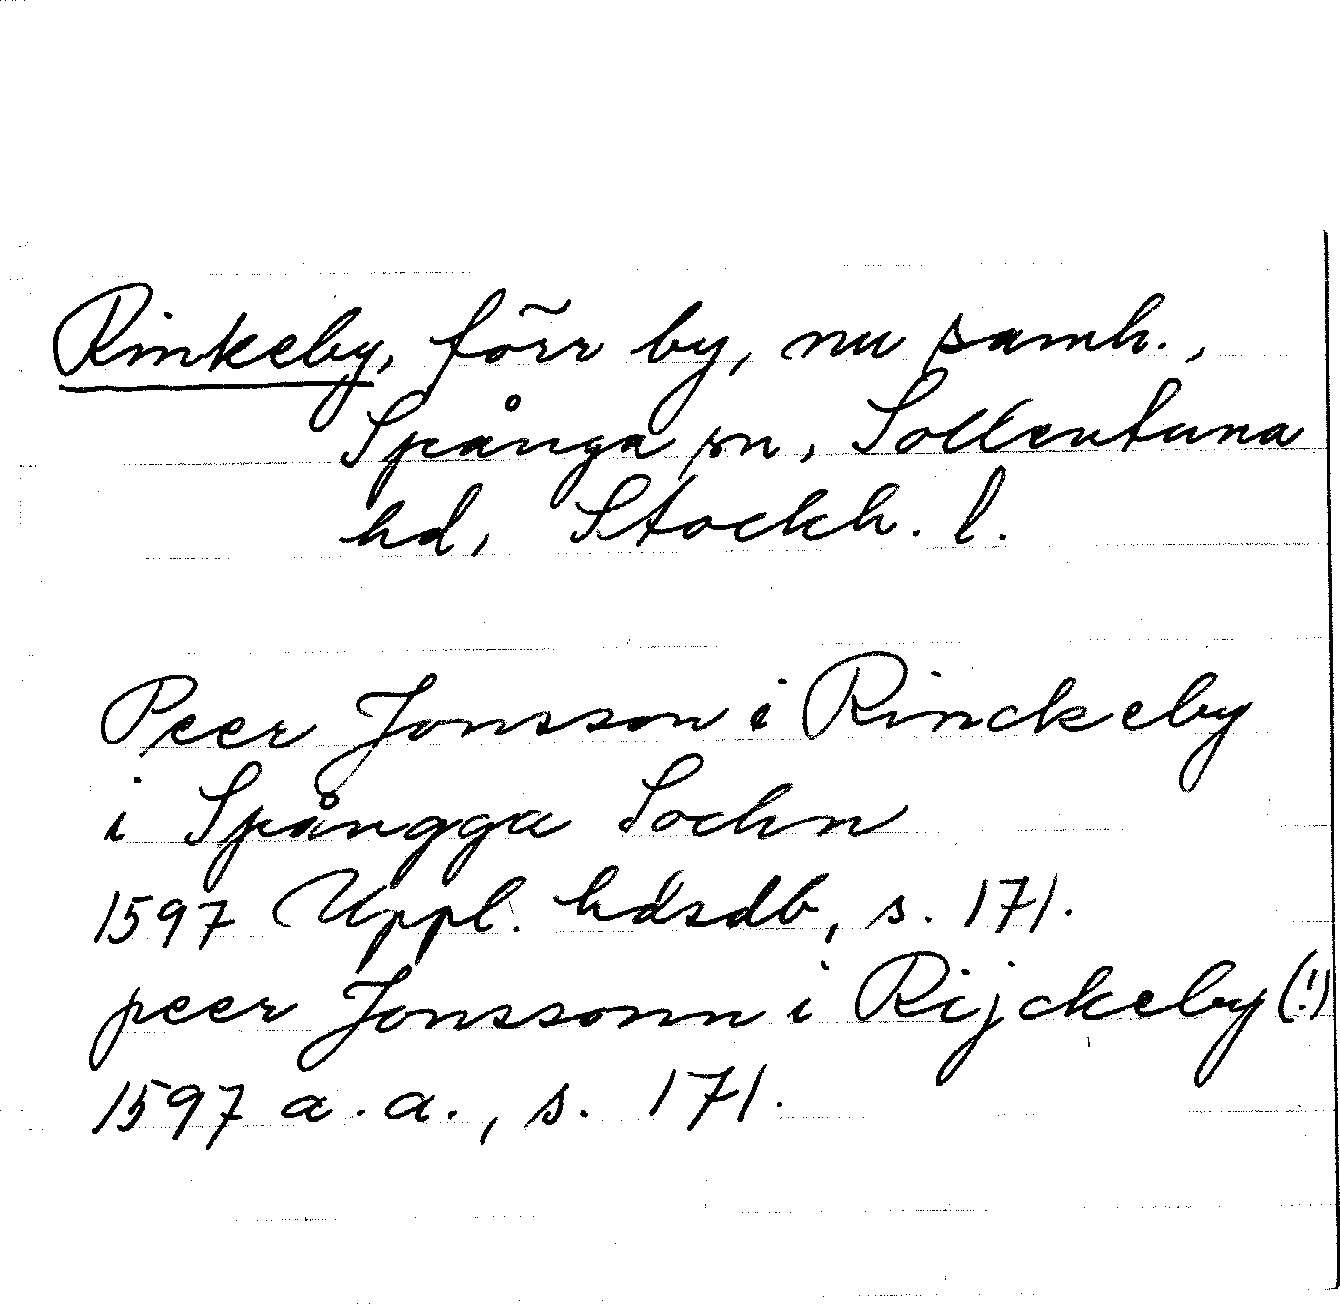 Rinkeby, förr by, nu samh.,
Spånga sn, Sollentuna
hd, Stockh. l.
Peer Jonsson i Rinckeby
i Spångga Sochn
1597 Uppl. hdsdb, s. 171.
peer Jonssonn i Rijckeby (!)
1597 a.a., s. 171.